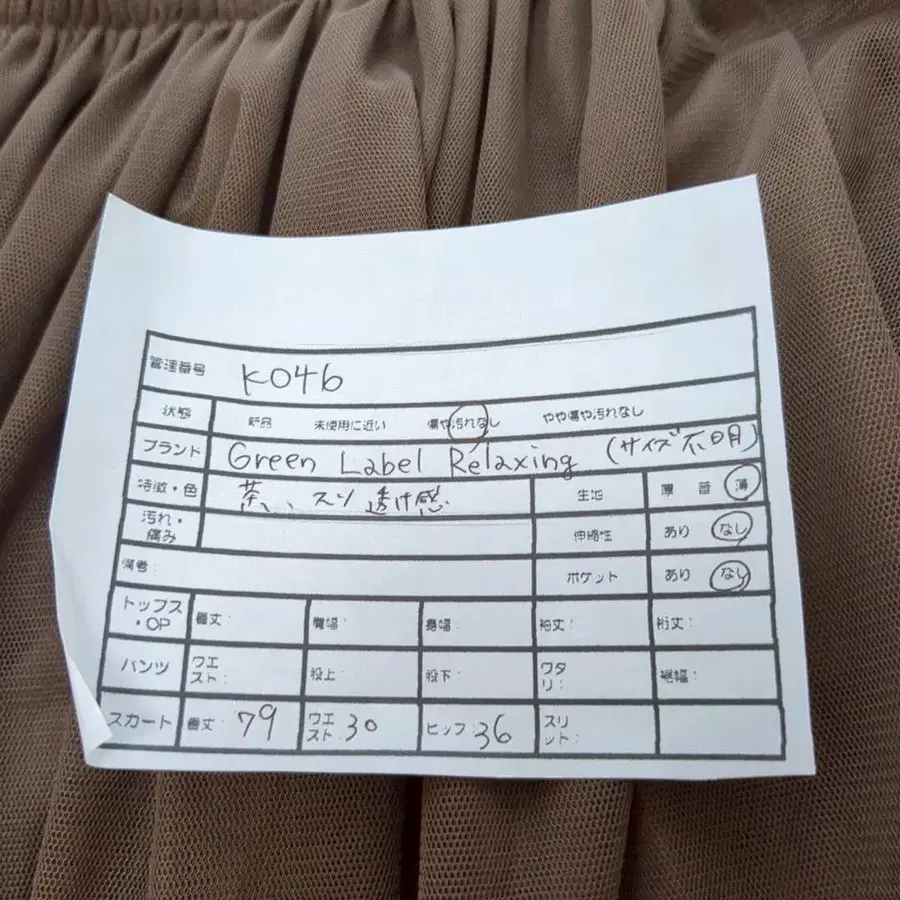 管理番号 K046
状態 新品 未使用に近い 傷や汚れなし やや傷や汚れなし
ブランド Green Label Relaxing (サイズ不明)
特徴・色 茶、スソ透け感 生地 厚 普 薄
汚れ・痛み 伸縮性 あり なし
備考: ポケット あり なし
トップス・OP 着丈: 肩幅: 身幅: 袖丈: 裄丈:
パンツ ウエスト: 股上: 股下: ワタリ: 裾幅:
スカート 着丈: 79 ウエスト: 30 ヒップ: 36 スリット: